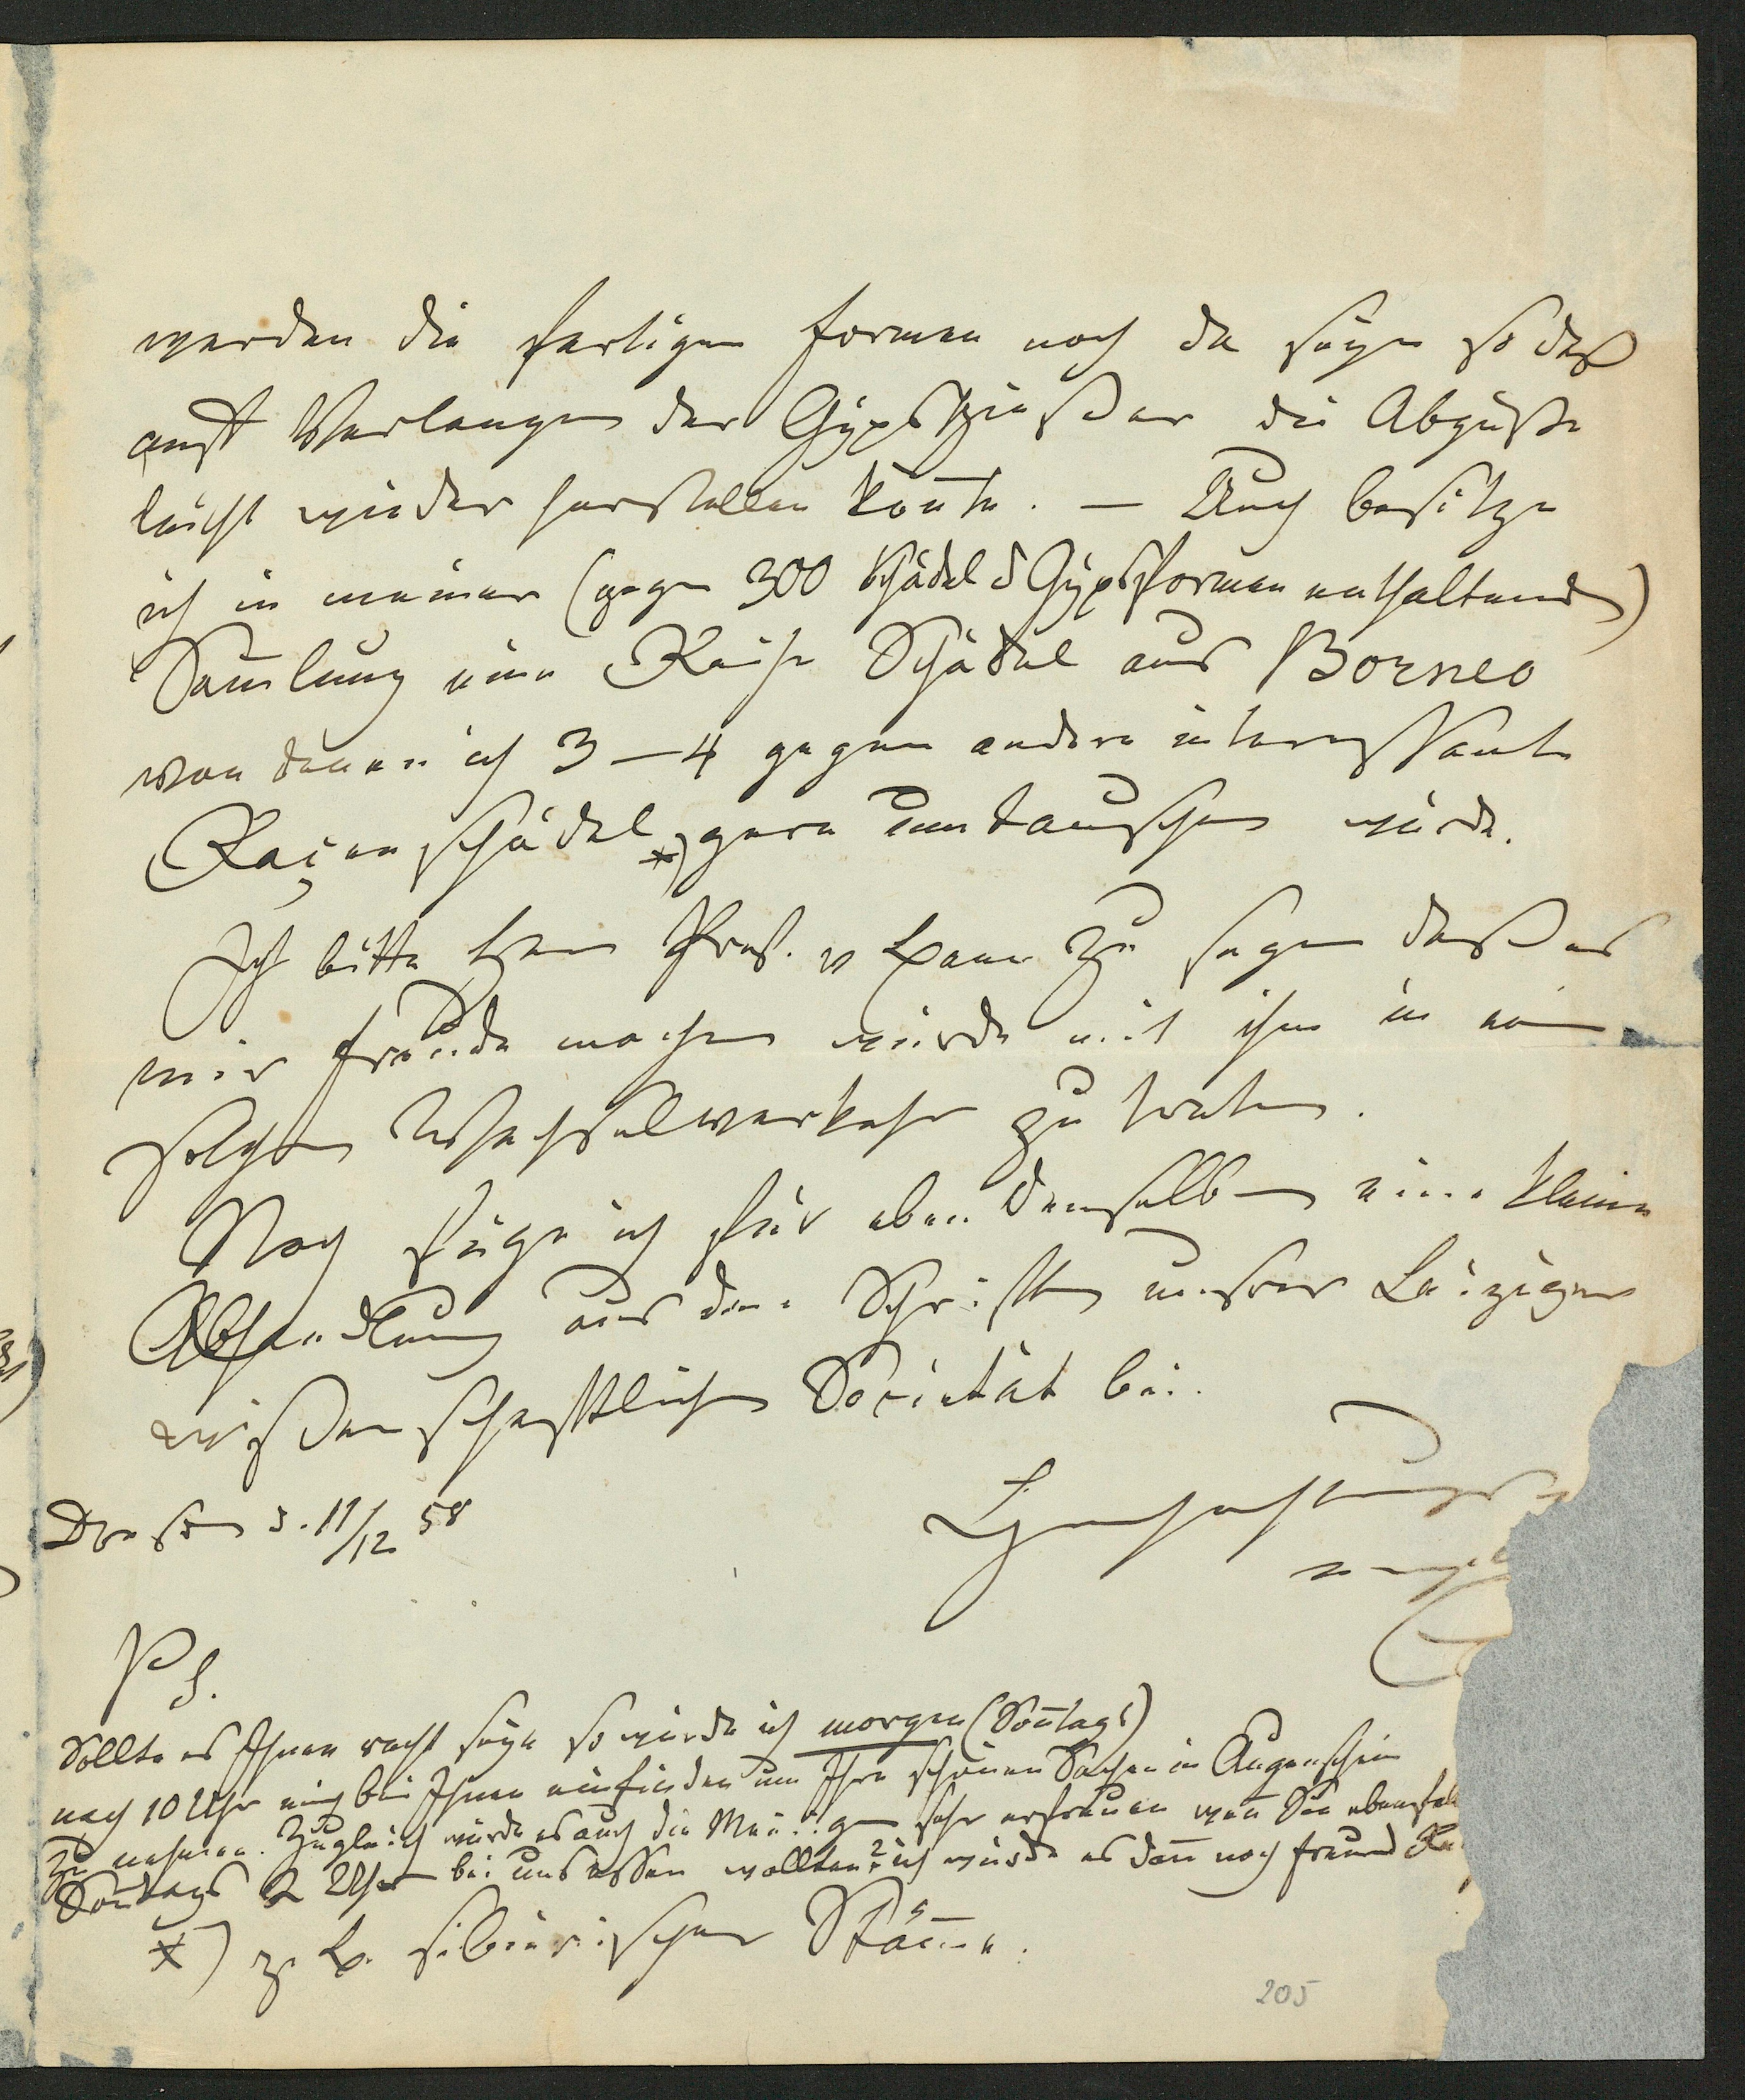 werden die fertigen Formen noch da seyn so daß
auf Verlangen der Gypsgießer die Abgüße
leicht wieder herstellen kön̅te. — Auch besitze
ich in meiner (gegen 300 Schädel & Gypsformen enthaltenden)
Sam̅lung eine Reihe Schädel aus Borneo
von denen ich 3–4 gegen andere interessante
Raçenschädel *) gern umtauschen würde.
Ich bitte Herrn Prof. v Baer zu sagen daß es
mir Freude machen würde mit ihm in einen
solchen Wechselverkehr zu treten.
Noch füge ich für eben denselben eine kleine
Abhandlung aus den Schriften unsrer Leipziger
wissenschaftlichen Societät bei.
Dresden d. 11/12 58
Hochachtungs
PS.
Sollte es Ihnen recht seyn so würde ich morgen (Son̅tags)
nach 10 Uhr mich bei Ihnen einfinden um Ihre schönen Sachen in Augenschein
zu nehmen. Zugleich würde es auch die Meinigen sehr erfreuen wen̅ Sie ebenfal
Son̅tags 2 Uhr bei uns essen wollten? ich würde es dan̅ noch Freund
*) z. B. sibirischer Stäm̅e.
205